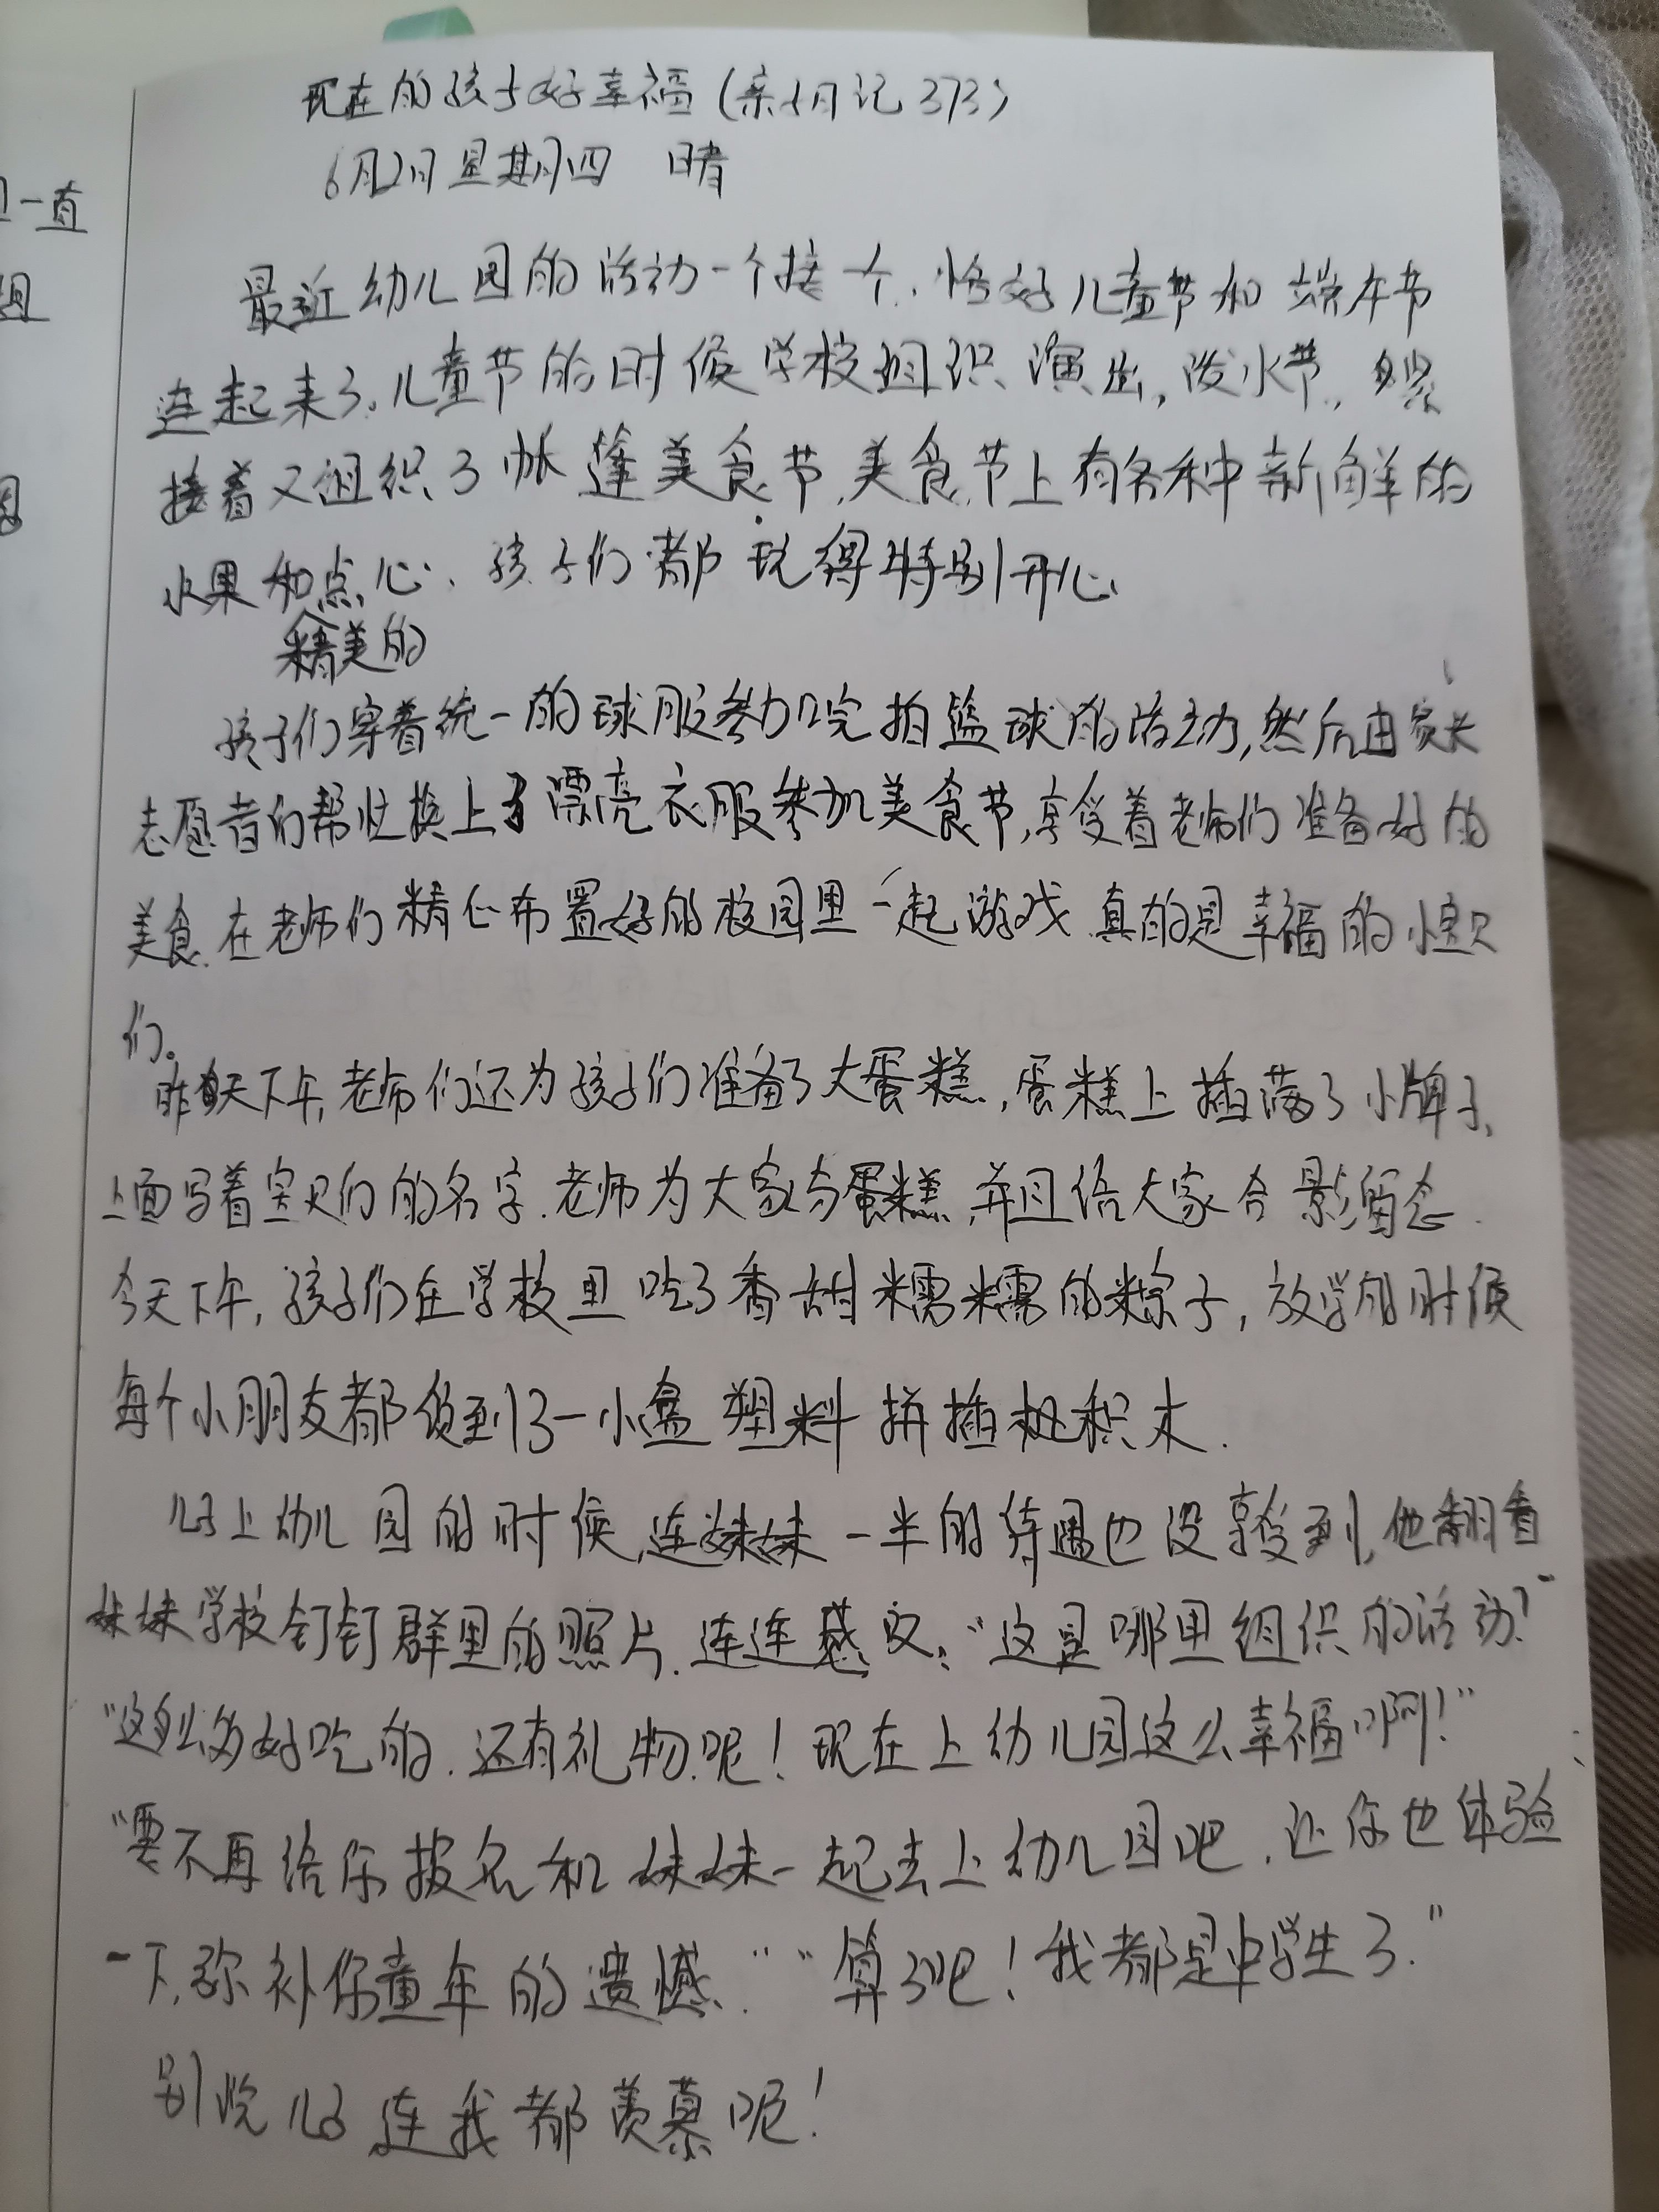 现在的孩子好幸福(亲子日记373)
6月2日星期四 晴
最近幼儿园的活动一个接一个,恰好儿童节和端午节
连起来了。儿童节的时候学校组织演出,泼水节,紧
接着又组织了帐蓬美食节,美食节上有各种新鲜的
水果和点心,孩子们都玩得特别开心、
精美的
孩子们穿着统一的球服参加完拍篮球的活动,然后由家长
志愿者们帮忙换上了漂亮衣服参加美食节,享受着老师们准备好的
美食,在老师们精心布置好的校园里一起游戏,真的是幸福的小宝贝
们。
昨天下午,老师们还为孩子们准备了大蛋糕,蛋糕上插满了小牌子,
上面写着宝贝们的名字.老师为大家分蛋糕,并且给大家合影留念.
今天下午,孩子们在学校里吃了香甜糯糯的粽子,放学的时候
每个小朋友都领到了一小盒塑料拼插积木.
儿子上幼儿园的时候,连妹妹一半的待遇也没享受到,他翻看
妹妹学校钉钉群里的照片,连连感叹:“这是哪里组织的活动?”
“这么多好吃的,还有礼物呢!现在上幼儿园这么幸福啊!”
“要不再给你报名和妹妹一起去上幼儿园吧,让你也体验
一下,弥补你童年的遗憾.”“算了吧!我都是中学生了.”
别说儿子连我都羡慕呢!
一直